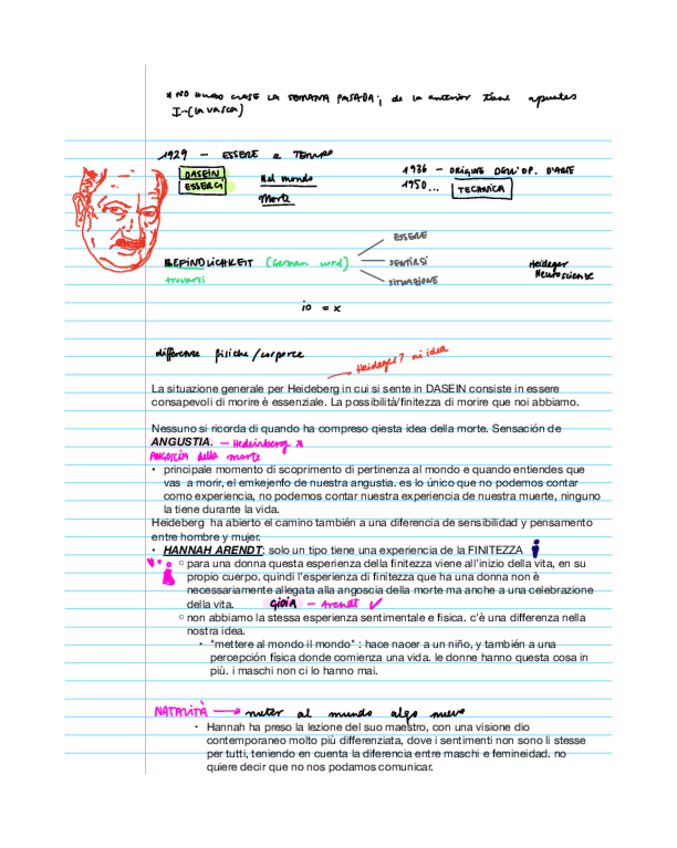 * NO HUBO CLASE LA SEMANA PASADA; de la anterior tiene apuntes
I--(la vasca)
1929 - ESSERE e TEMPO
DASEIN
ESSERCI
Nel mondo
Morte
1936 - ORIGINE DELL'OP. D'ARTE
1950... TECHNICA
ESSERE
BEFINDLICHKEIT (German word)
SENTIRSI
trovarsi
SITUAZIONE
Heideger
Neuroscienze
io = x
differenze fisiche/corporee
Heideger? ni idea
La situazione generale per Heideberg in cui si sente in DASEIN consiste in essere
consapevoli di morire è essenziale. La possibilità/finitezza di morire que noi abbiamo.
Nessuno si ricorda di quando ha compreso qiesta idea della morte. Sensación de
ANGUSTIA. - Hedeinberg *
ANGOSCIA della morte
• principale momento di scoprimento di pertinenza al mondo e quando entiendes que
vas a morir, el emkejenfo de nuestra angustia. es lo único que no podemos contar
como experiencia, no podemos contar nuestra experiencia de nuestra muerte, ninguno
la tiene durante la vida.
Heideberg ha abierto el camino también a una diferencia de sensibilidad y pensamento
entre hombre y mujer.
• HANNAH ARENDT: solo un tipo tiene una experiencia de la FINITEZZA
○ para una donna questa esperienza della finitezza viene all'inizio della vita, en su
propio cuerpo. quindi l'esperienza di finitezza que ha una donna non è
necessariamente allegata alla angoscia della morte ma anche a una celebrazione
della vita. GIOIA - Arendt ✓
○ non abbiamo la stessa esperienza sentimentale e fisica. c'è una differenza nella
nostra idea.
• "mettere al mondo il mondo" : hace nacer a un niño, y también a una
percepción física donde comienza una vida. le donne hanno questa cosa in
più. i maschi non ci lo hanno mai.
NATALITÀ → meter al mundo algo nuevo
• Hannah ha preso la lezione del suo maestro, con una visione dio
contemporaneo molto più differenziata, dove i sentimenti non sono li stesse
per tutti, teniendo en cuenta la diferencia entre maschi e femineidad. no
quiere decir que no nos podamos comunicar.